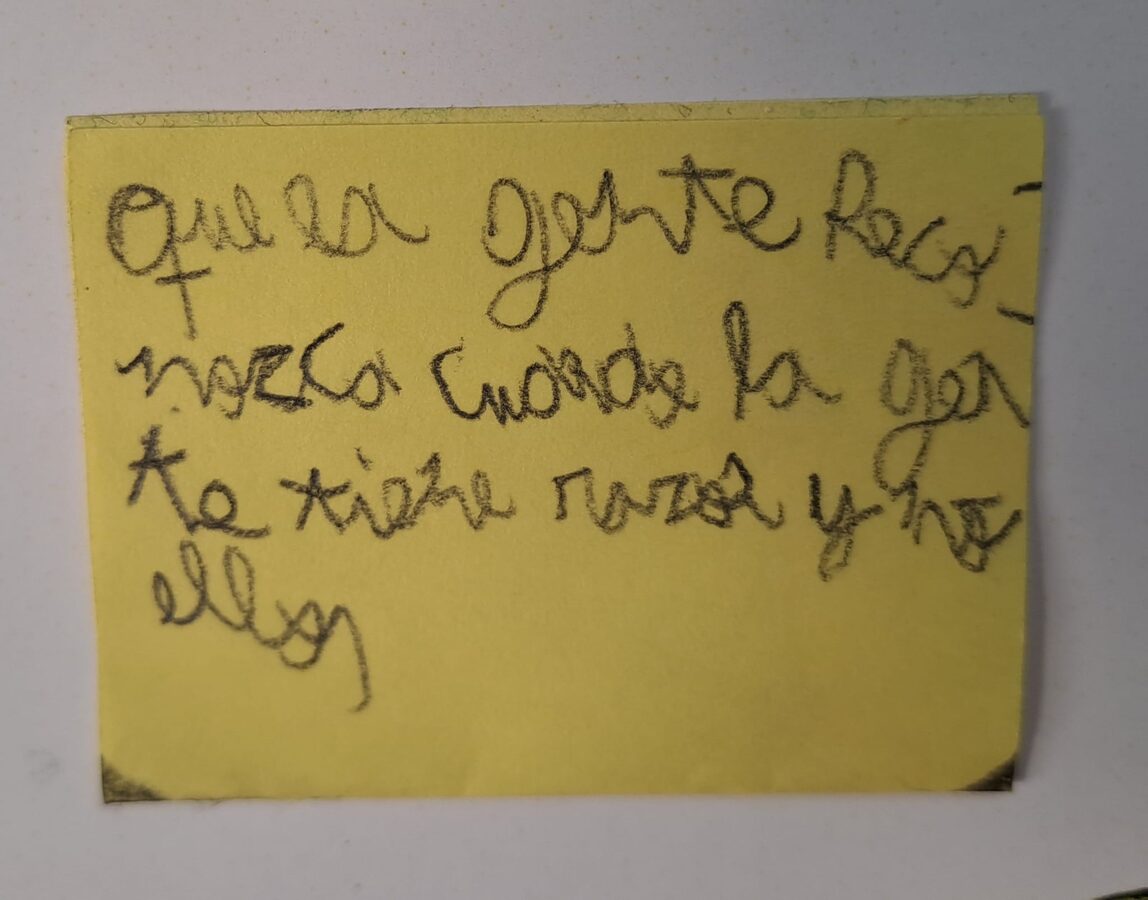 Que la gente Reco-
nozca cuando la gen
te tiene razon y no
ellos